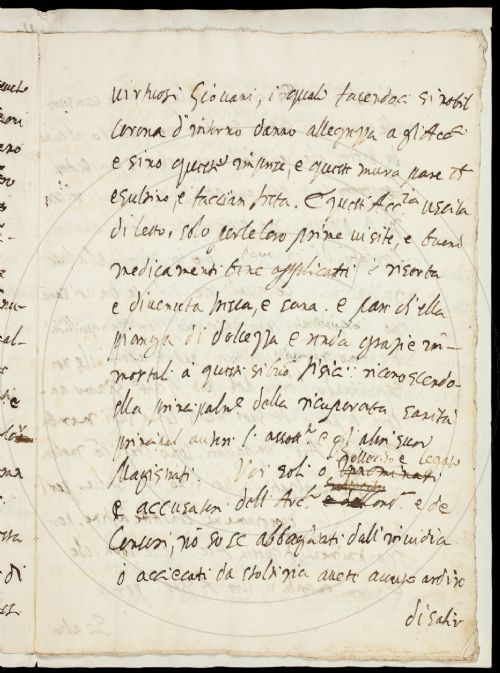 virtuosi Giovani, i quali facendoci sì nobil
corona d'intorno danno allegrezza a gli Acc.ci
e sino queste insensate, e queste mura pare ch'
esultino, e faccian festa. E questa Acc.ia uscita
di letto, solo per le loro prime visite, e buoni
medicamenti bene applicati è risorta
e divenuta fresca, e sana. e pare ch'ella
pianga di dolcezza e renda grazie im-
mortali a questi Fisici: riconoscendo
ella principalm.e della ricuperata sanità
principal autori e gli altri suoi
Magistrati. Voi soli o Sollecito e Legato
e accusatori dell'Arc.o e de
Censori, nõ so se abbagliati dall'invidia
o acciecati da stoltizia avete avuto ardire
di salir